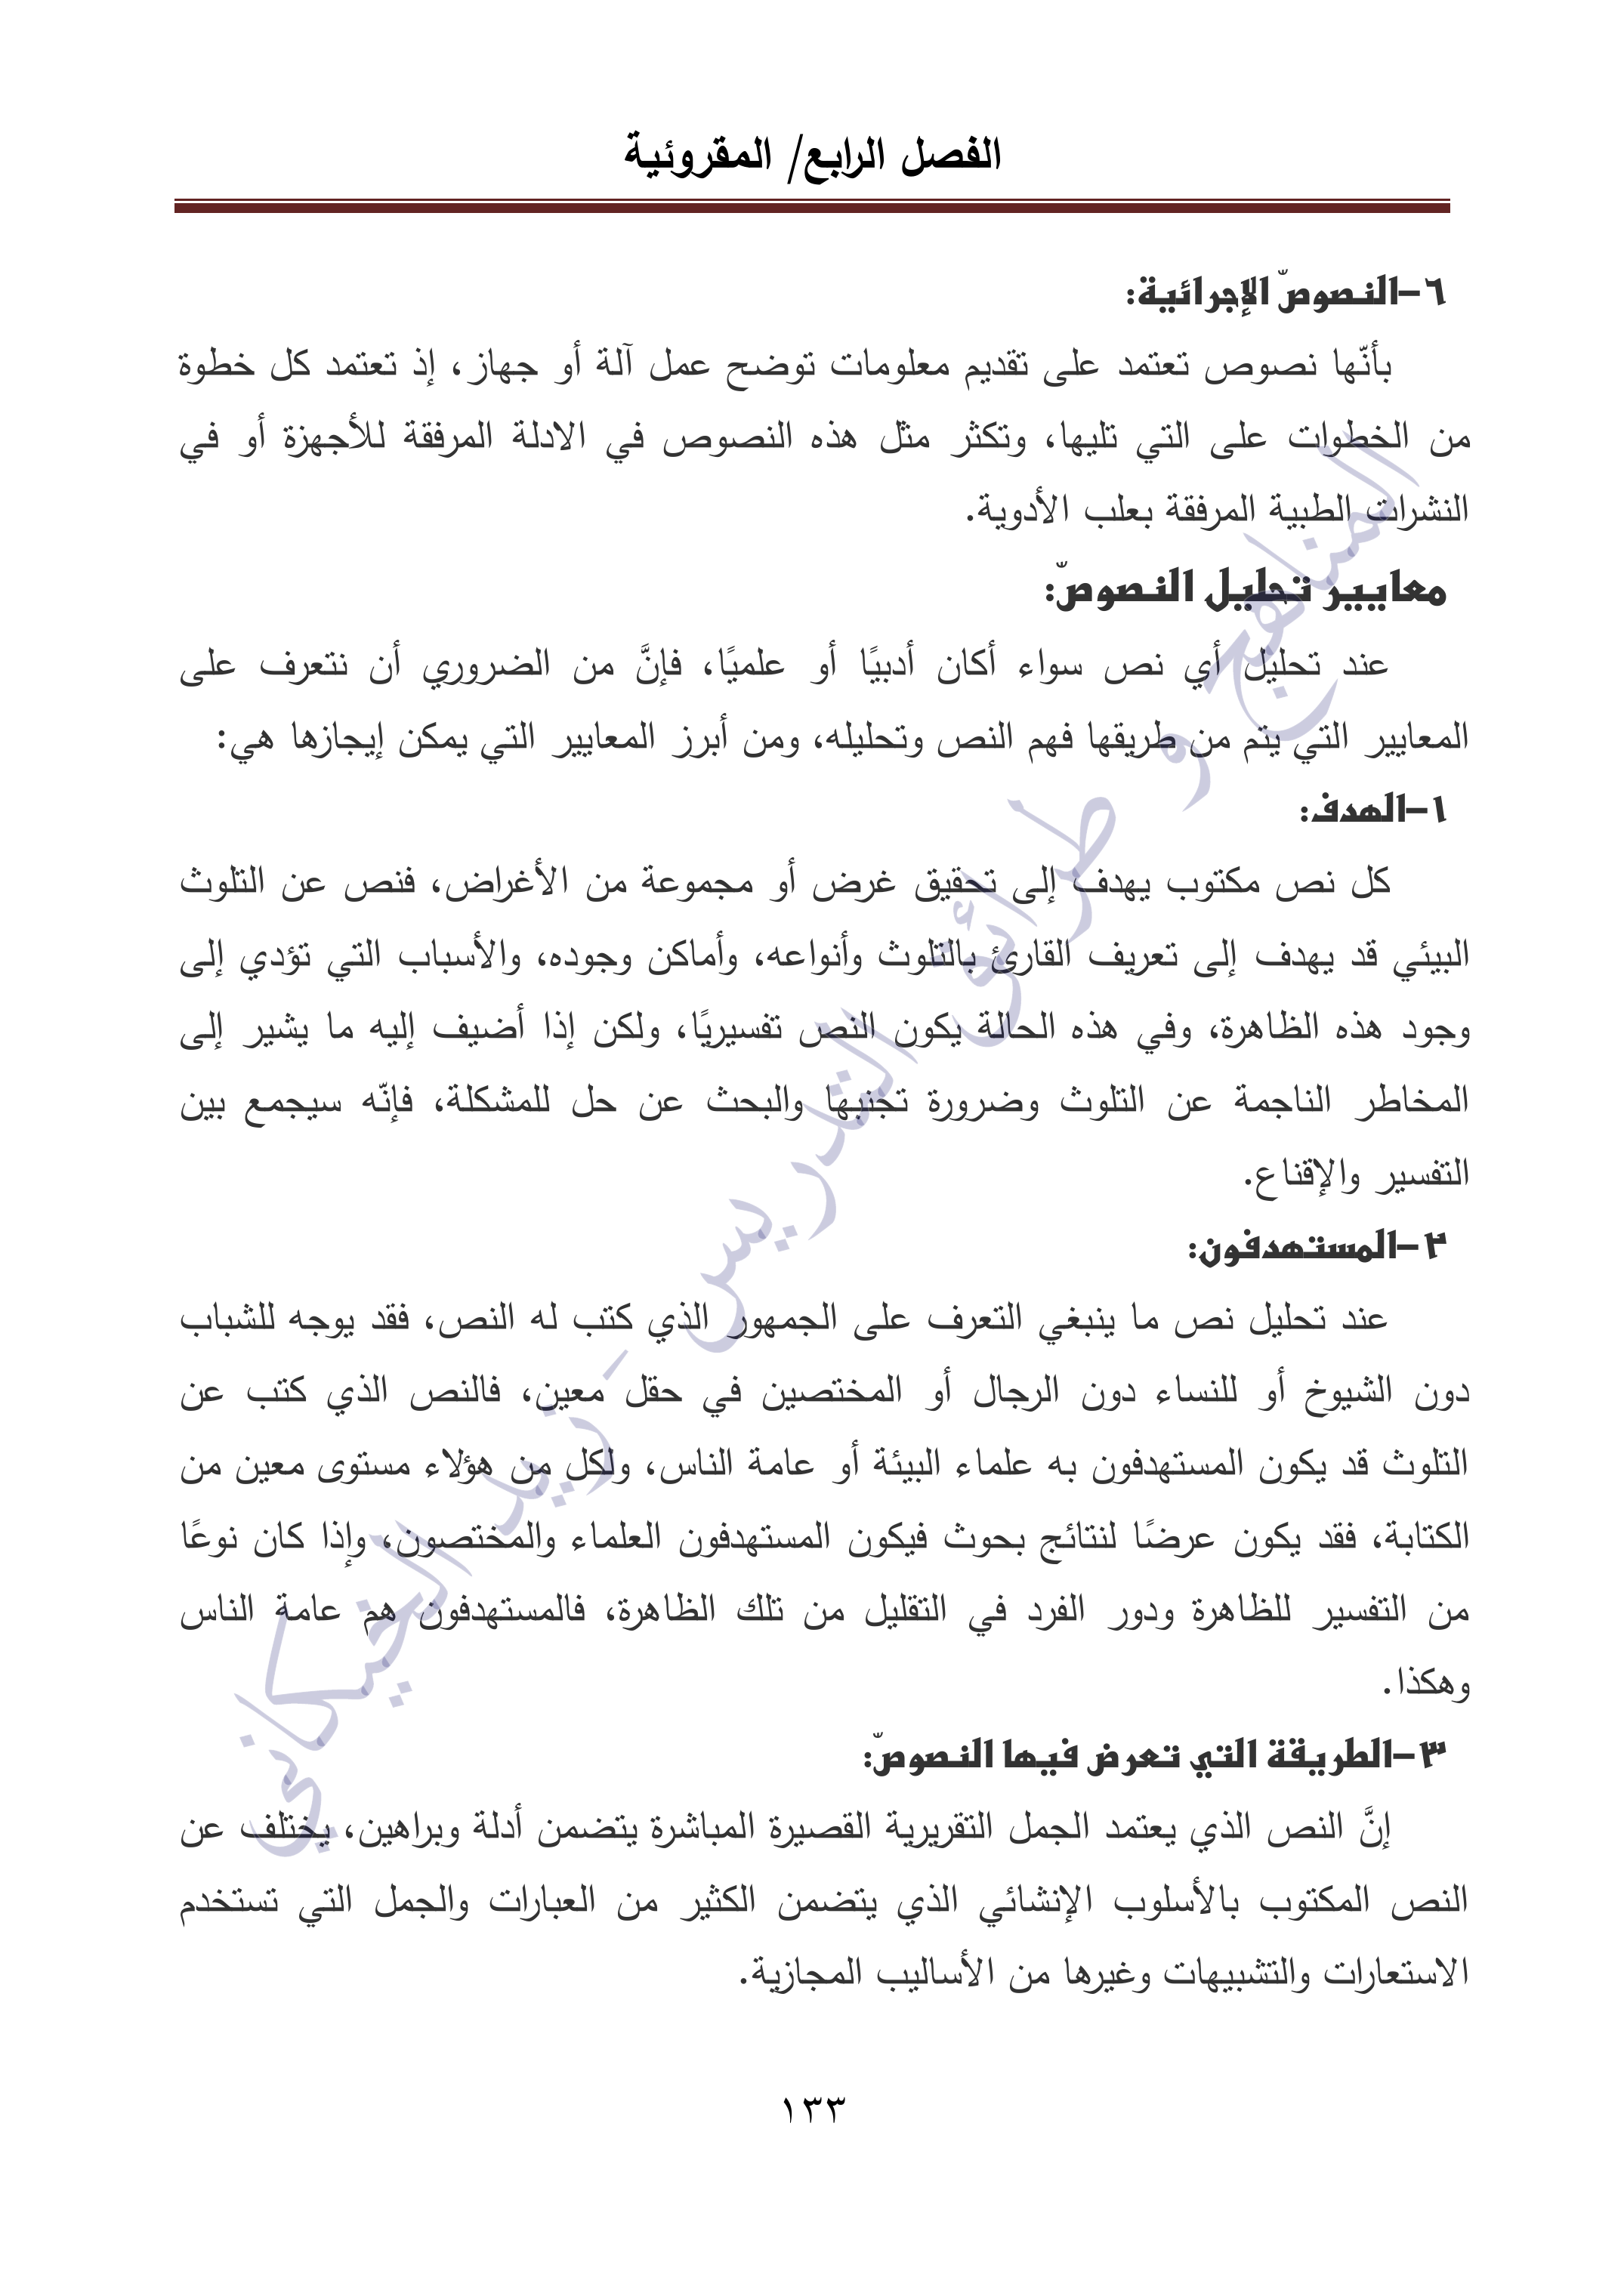 الفصل الرابع/ المقروئية
٦-النصوص الإجرائية:
بأنّها نصوص تعتمد على تقديم معلومات توضح عمل آلة أو جهاز، إذ تعتمد كل خطوة
من الخطوات على التي تليها، وتكثر مثل هذه النصوص في الادلة المرفقة للأجهزة أو في
النشرات الطبية المرفقة بعلب الأدوية.
معايير تحليل النصوص:
عند تحليل أي نص سواء أكان أدبيًا أو علميًا، فإنَّ من الضروري أن نتعرف على
المعايير التي يتم من طريقها فهم النص وتحليله، ومن أبرز المعايير التي يمكن إيجازها هي:
١-الهدف:
كل نص مكتوب يهدف إلى تحقيق غرض أو مجموعة من الأغراض، فنص عن التلوث
البيئي قد يهدف إلى تعريف القارئ بالتلوث وأنواعه، وأماكن وجوده، والأسباب التي تؤدي إلى
وجود هذه الظاهرة، وفي هذه الحالة يكون النص تفسيريًا، ولكن إذا أضيف إليه ما يشير إلى
المخاطر الناجمة عن التلوث وضرورة تجنبها والبحث عن حل للمشكلة، فإنّه سيجمع بين
التفسير والإقناع.
٢-المستهدفون:
عند تحليل نص ما ينبغي التعرف على الجمهور الذي كتب له النص، فقد يوجه للشباب
دون الشيوخ أو للنساء دون الرجال أو المختصين في حقل معين، فالنص الذي كتب عن
التلوث قد يكون المستهدفون به علماء البيئة أو عامة الناس، ولكل من هؤلاء مستوى معين من
الكتابة، فقد يكون عرضًا لنتائج بحوث فيكون المستهدفون العلماء والمختصون، وإذا كان نوعًا
من التفسير للظاهرة ودور الفرد في التقليل من تلك الظاهرة، فالمستهدفون هم عامة الناس
وهكذا.
٣-الطريقة التي تعرض فيها النصوص:
إنَّ النص الذي يعتمد الجمل التقريرية القصيرة المباشرة يتضمن أدلة وبراهين، يختلف عن
النص المكتوب بالأسلوب الإنشائي الذي يتضمن الكثير من العبارات والجمل التي تستخدم
الاستعارات والتشبيهات وغيرها من الأساليب المجازية.
١٣٣
المناهج و طرائق التدريس - زيد الخيكاني